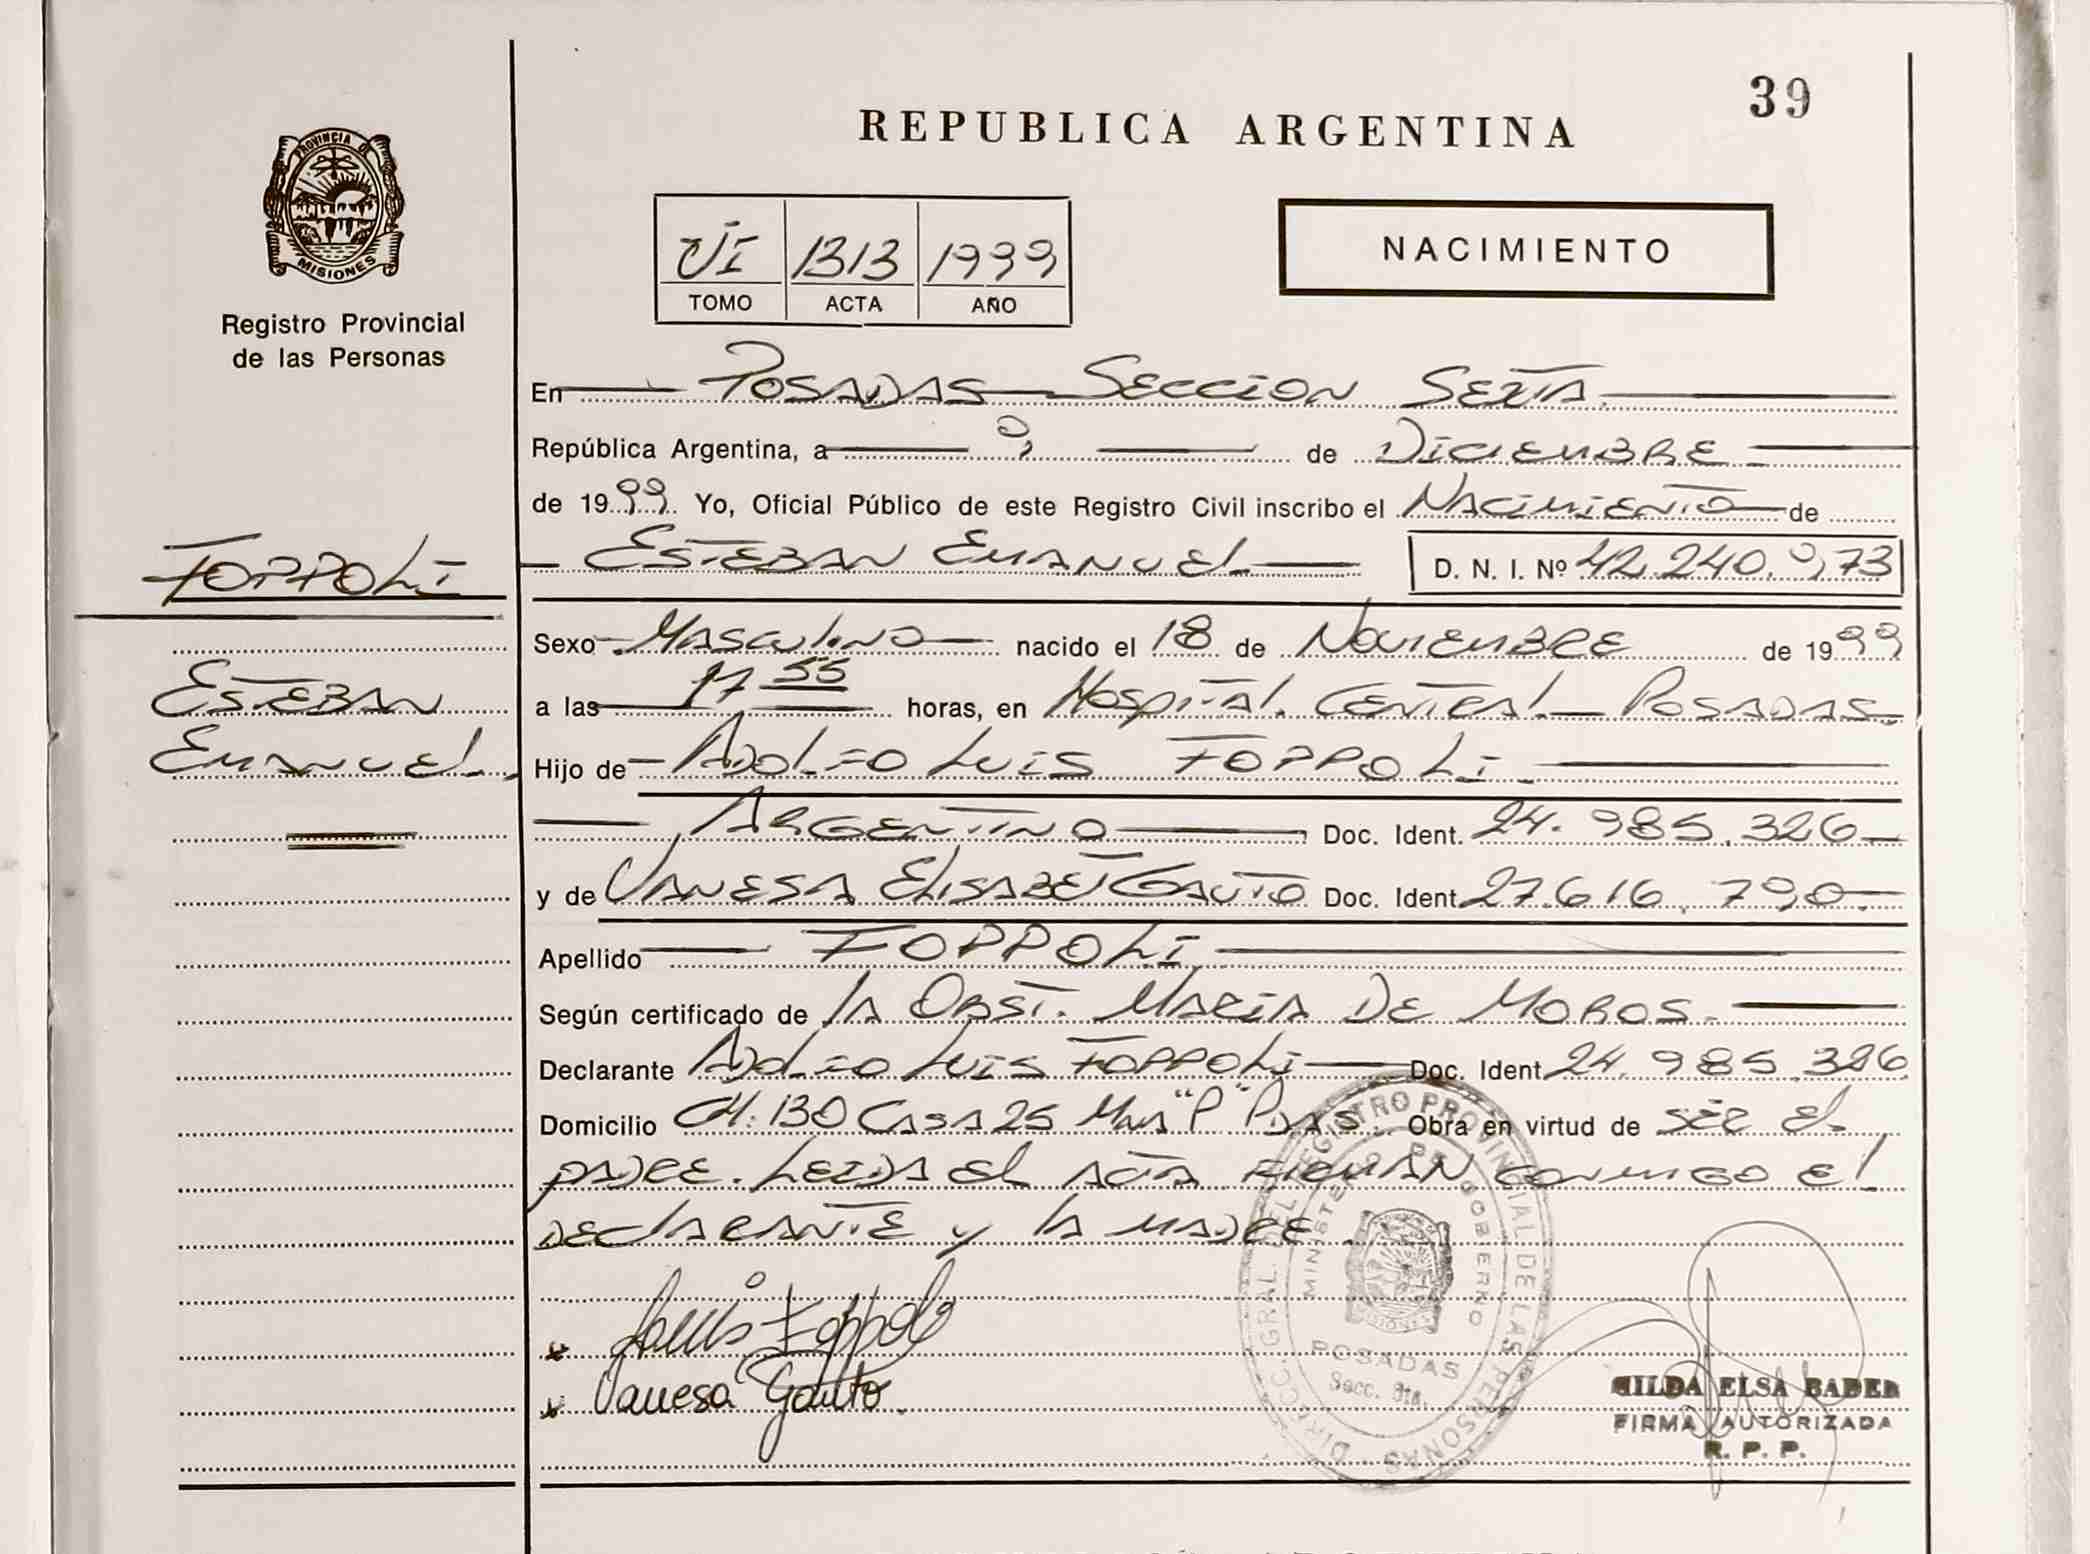 39
REPUBLICA ARGENTINA
PROVINCIA DE
MISIONES
Registro Provincial
de las Personas
VI 1313 1999
TOMO ACTA AÑO
NACIMIENTO
En POSADAS SECCION SEXTA
República Argentina, a 9 de DICIEMBRE
de 1999 Yo, Oficial Público de este Registro Civil inscribo el NACIMIENTO de
FOPPOLI
ESTEBAN EMANUEL D. N. I. Nº 42.240.973
Sexo MASCULINO nacido el 18 de NOVIEMBRE de 1999
ESTEBAN
a las 17 55 horas, en HOSPITAL CENTRAL POSADAS
EMANUEL
Hijo de ADOLFO LUIS FOPPOLI
ARGENTINO Doc. Ident. 24.985.326
y de VANESA ELISABET GAUTO Doc. Ident 27.616.790
Apellido FOPPOLI
Según certificado de LA OBST. MARIA DE MOROS
Declarante ADOLFO LUIS FOPPOLI Doc. Ident 24.985.326
Domicilio CH. 130 CASA 25 MNA "P" PDAS. Obra en virtud de SER EL
PADRE. LEIDA EL ACTA FIRMAN CONMIGO EL
DECLARANTE Y LA MADRE
Luis Foppoli
Vanesa Gauto
DIRECC. GRAL. DEL REGISTRO PROVINCIAL DE LAS PERSONAS
MINISTERIO DE GOBIERNO
POSADAS
Secc. 6ta.
GILDA ELSA BADER
FIRMA AUTORIZADA
R. P. P.